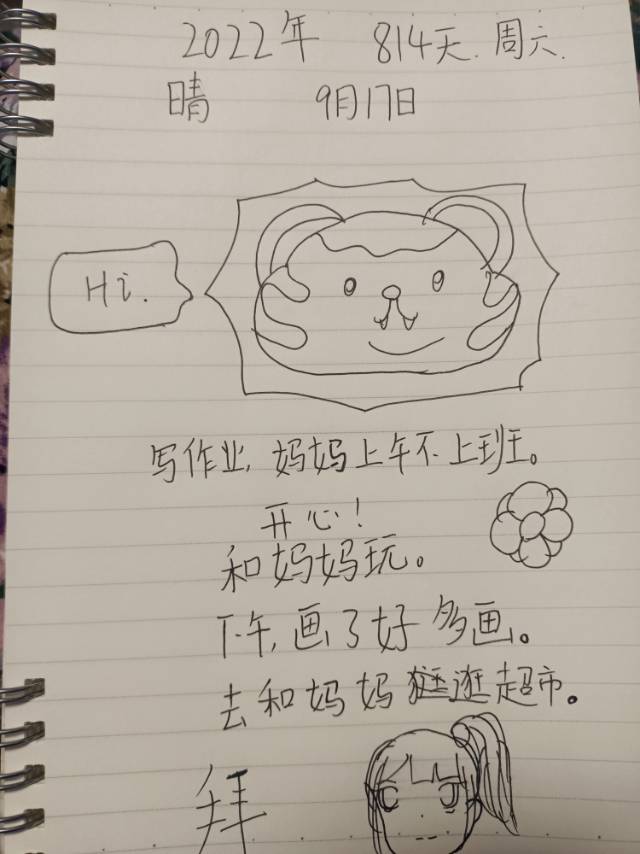 2022年 814天.周六.
晴 9月17日
Hi.
写作业,妈妈上午不上班。
开心!
和妈妈玩。
下午,画了好多画。
去和妈妈逛逛超市。
拜